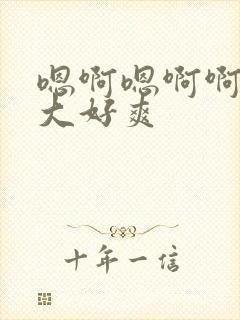 嗯啊嗯啊啊
大好爽
十年一信